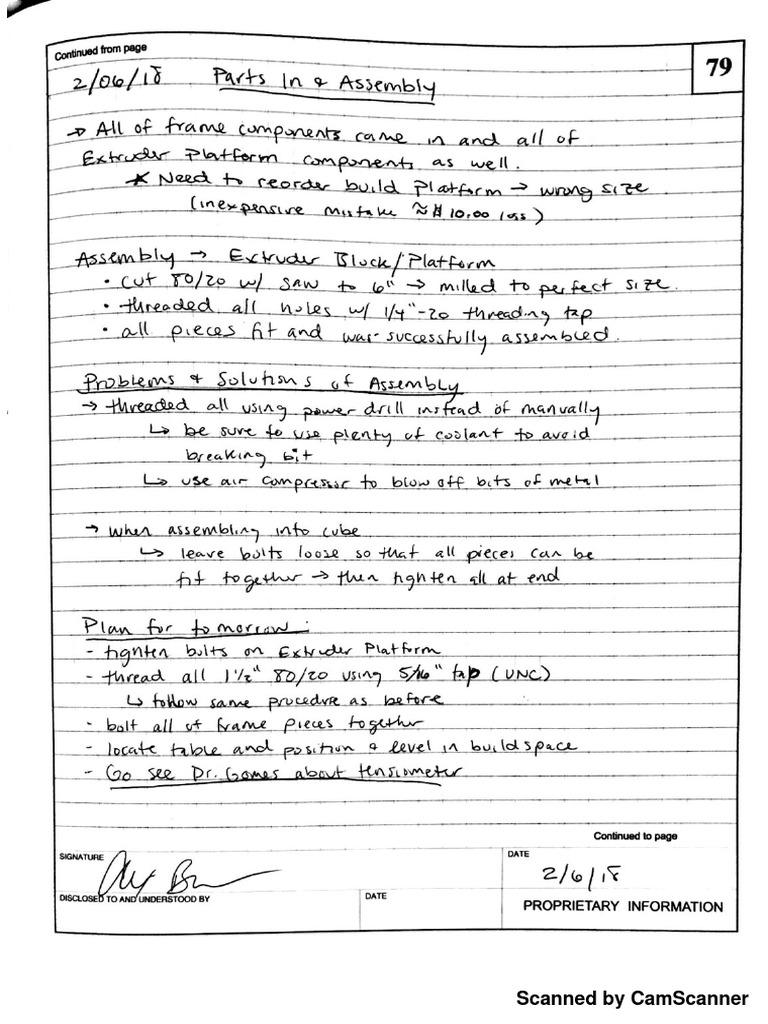 Continued from page
79
2/06/18 Parts In & Assembly
→ All of frame components came in and all of
Extruder Platform components as well.
* Need to reorder build Platform → wrong size
(inexpensive mistake ≈ $10.00 loss)
Assembly → Extruder Block/Platform
• cut 80/20 w/ saw to 6" → milled to perfect size.
• threaded all holes w/ 1/4"-20 threading tap
• all pieces fit and was successfully assembled.
Problems & Solutions of Assembly
→ threaded all using power drill instead of manually
↳ be sure to use plenty of coolant to avoid
breaking bit
↳ use air compressor to blow off bits of metal
→ when assembling into cube
↳ leave bolts loose so that all pieces can be
fit together → then tighten all at end
Plan for tomorrow:
- tighten bolts on Extruder Platform
- thread all 1 1/2" 80/20 using 5/16" tap (UNC)
↳ follow same procedure as before
- bolt all of frame pieces together
- locate table and position & level in buildspace
- Go see Dr. Gomes about tensiometer
Continued to page
SIGNATURE
DATE
2/6/18
DISCLOSED TO AND UNDERSTOOD BY
DATE
PROPRIETARY INFORMATION
Scanned by CamScanner